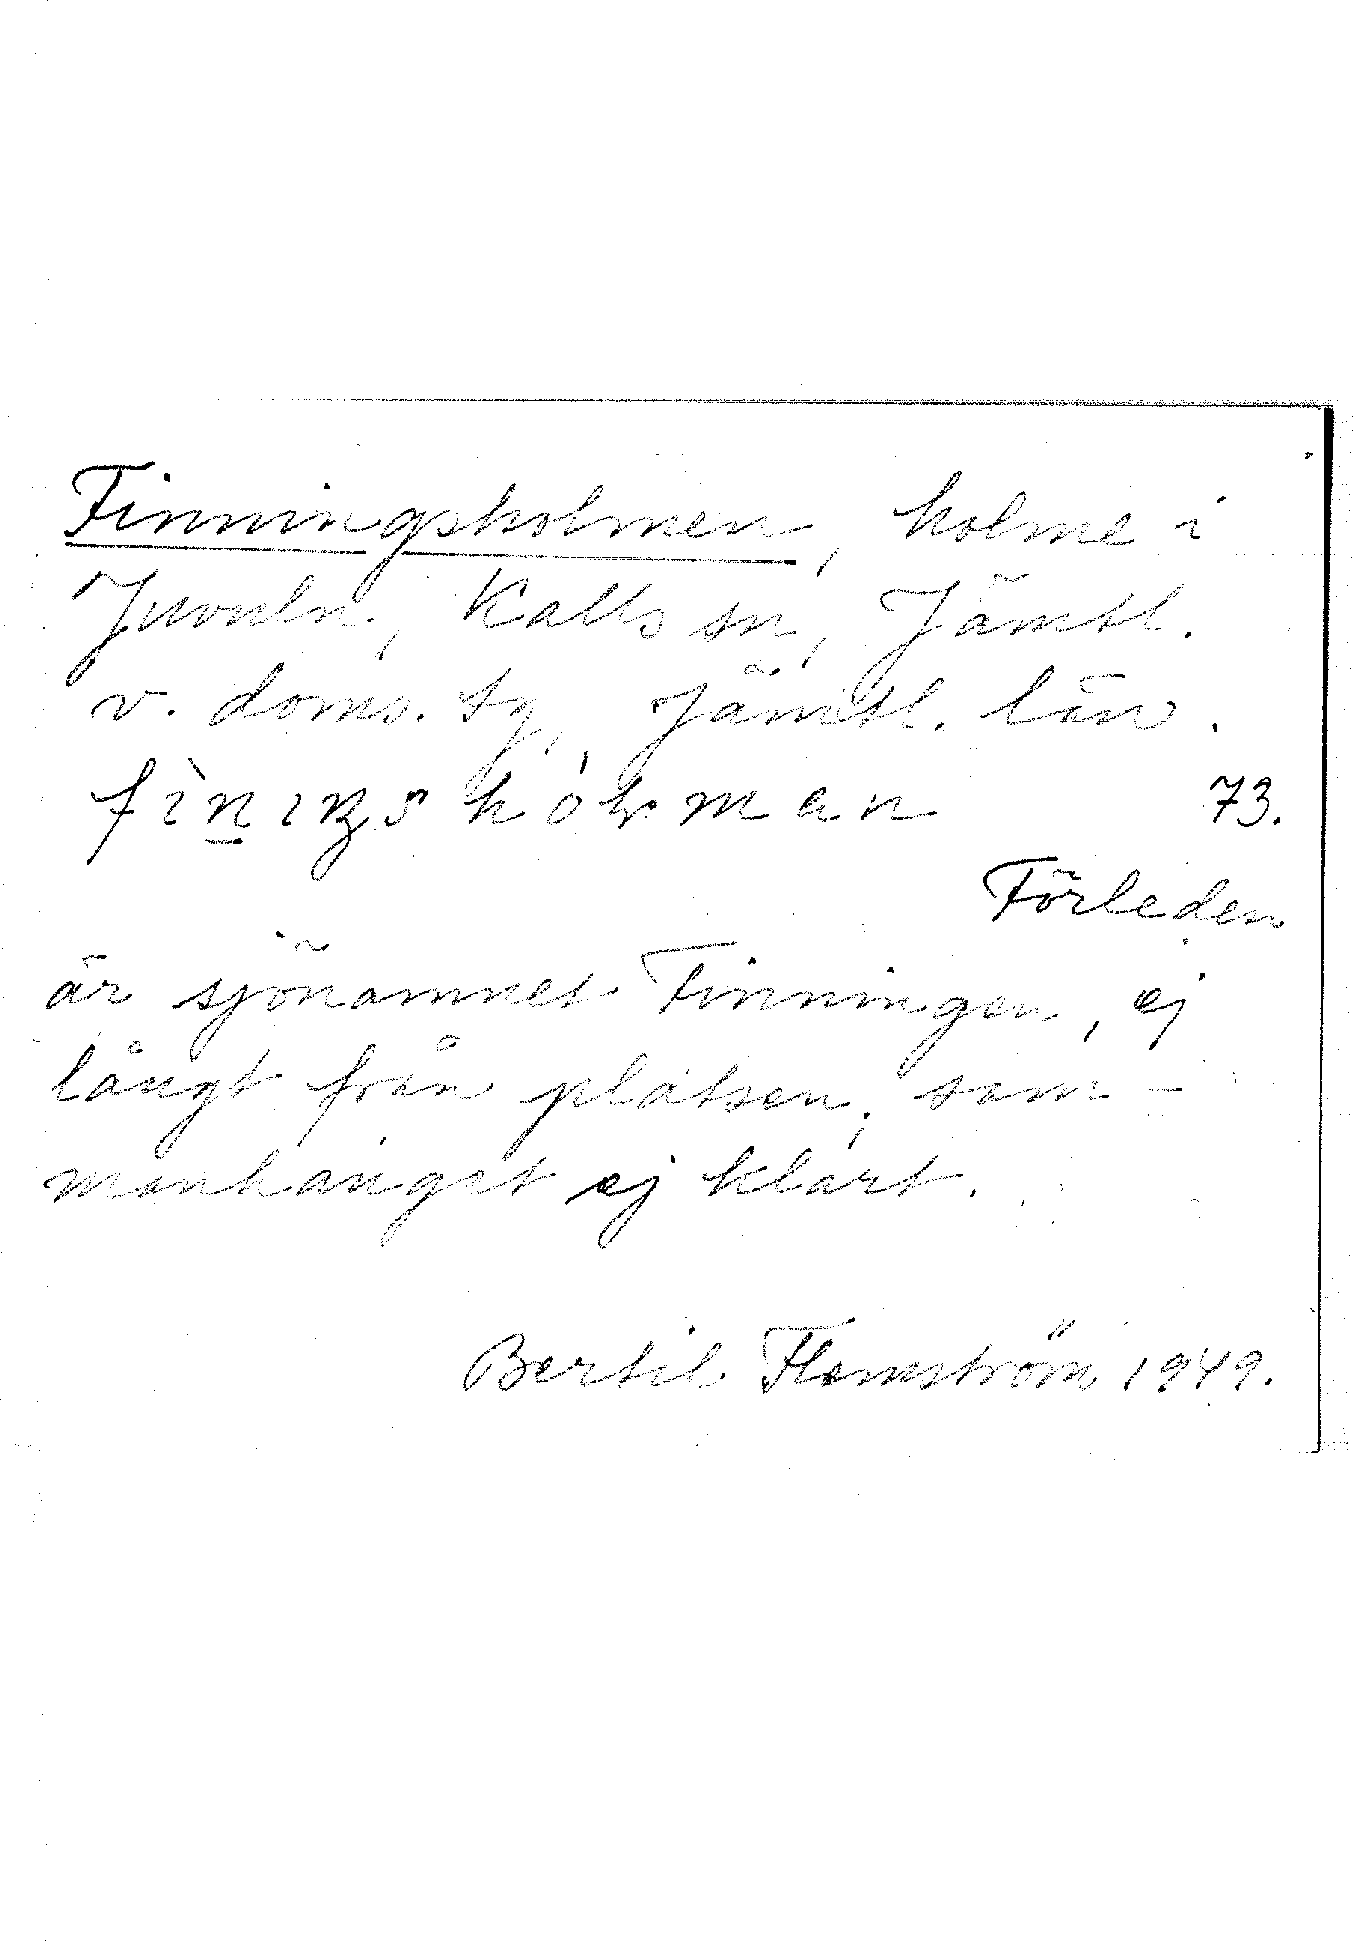 Finningsholmen, holme i
Juvuln, Kalls sn, Jämtl.
v. doms. tg, Jämtl. län.
73.
Förleden
är sjönamnet Finningen, ej
långt från platsen, sam-
manhanget ej klart.
Bertil Flemström 1949.